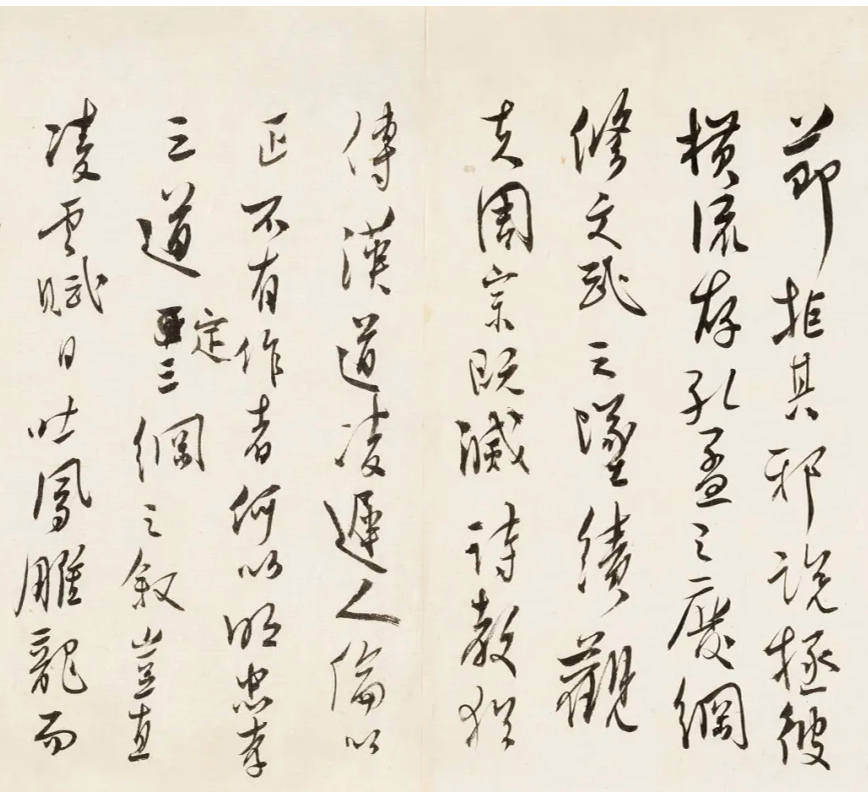 節拒其邪說極彼
橫流存孔孟之廢綱
修文武之墜績觀
夫周宗既滅詩教猶
傳漢道凌遲人倫以
正不有作者何以明忠孝
之道定三綱之叙豈直
凌雲賦日吐鳳雕龍而